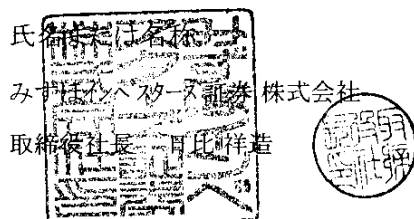 氏名または名称
みずほインベスターズ証券株式会社
取締役社長 日比 祥造